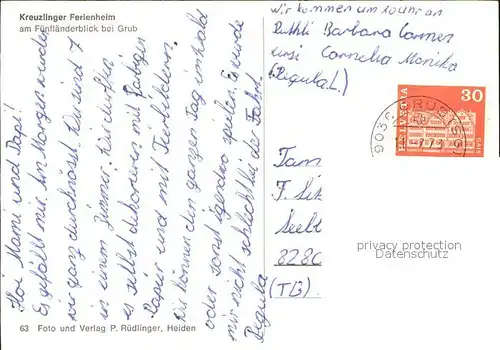 Kreuzlinger Ferienheim
am Fünfländerblick bei Grub
Hoi Mami und Papi!
Es gefällt mir. Am Morgen wurden
wir ganz durchnässt. Wir sind 7
in einem Zimmer. Wir durften
es selbst dekorieren mit farbigen
Papier und mit Tierbildern.
Wir können den ganzen Tag im Wald
oder sonst irgendwo spielen. Es wurde
mir nicht schlecht bei der Fahrt.
Regula
63 Foto und Verlag P. Rüdlinger, Heiden
Wir kommen um 10 Uhr an
Ruthli Barbara Carmen
Ursi Cornelia Monika
(Regula L.)
30
HELVETIA
GAIS
9036 GRUB (SG)
Tam
F. Sti
Seebl
8280
(TG)
privacy protection
Datenschutz